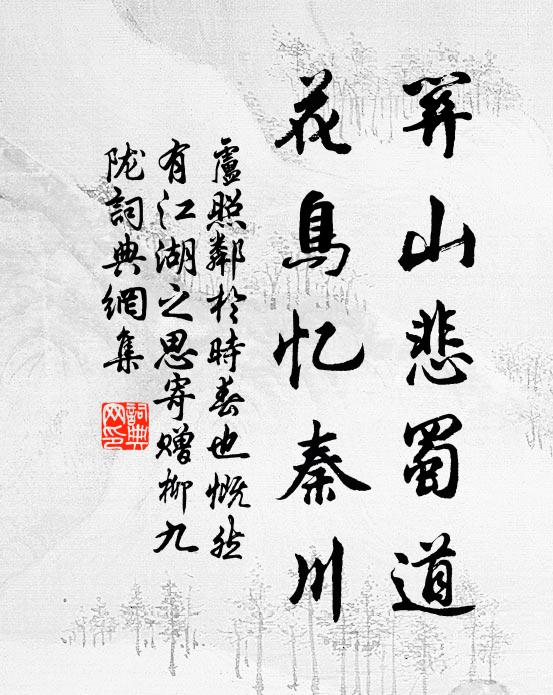 关山悲蜀道
花鸟忆秦川
盧照鄰於時春也慨然
有江湖之思寄赠柳九
陇詞典網集
詞典
网印